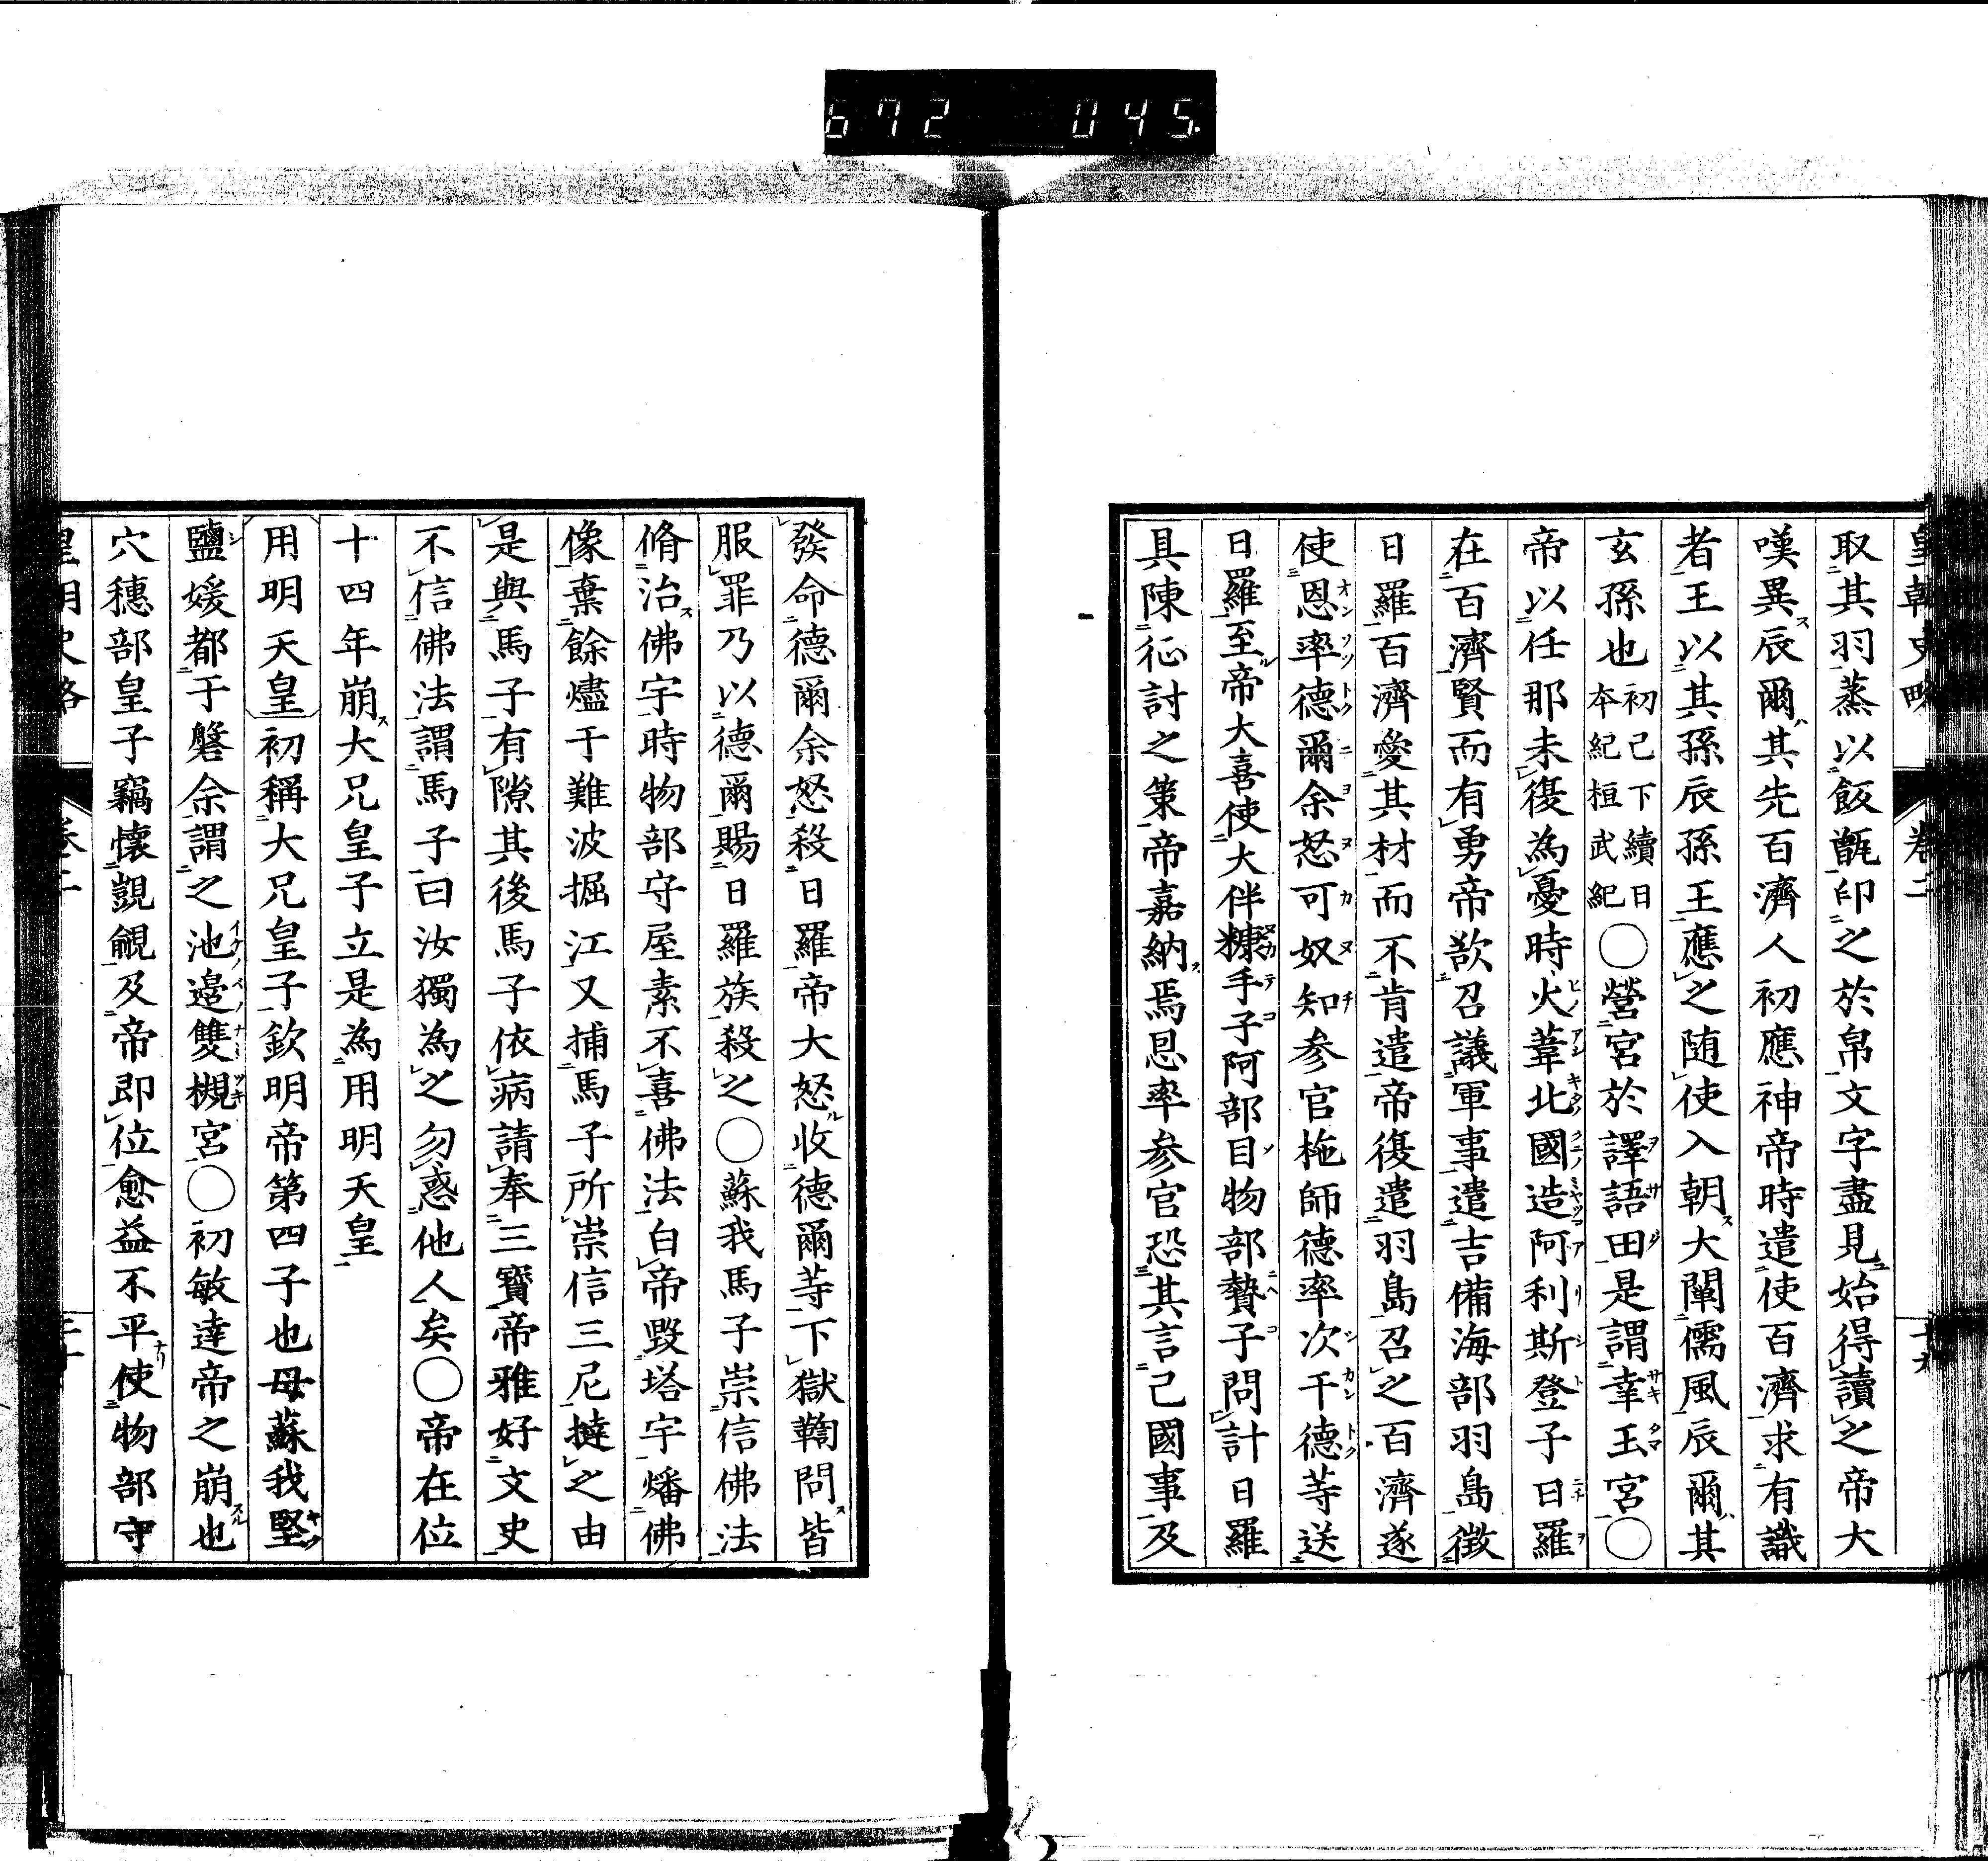 672 045
皇朝史略 卷二
取其羽蒸以飯甑印之於帛文字盡見始得讀之帝大
嘆異辰爾其先百濟人初應神帝時遣使百濟求有識
者王以其孫辰孫王應之随使入朝大闡儒風辰爾其
玄孫也初己下續日本紀桓武紀○營宮於譯語田是謂幸玉宮○
帝以任那未復為憂時火葦北國造阿利斯登子日羅
在百濟賢而有勇帝欲召議軍事遣吉備海部羽島徵
日羅百濟愛其材而不肯遣帝復遣羽島召之百濟遂
使恩率德爾余怒可奴知参官柂師德率次干德等送
日羅至帝大喜使大伴糠手子阿部目物部贄子問計日羅
具陳征討之策帝嘉納焉恩率参官恐其言己國事及
發命德爾余怒殺日羅帝大怒收德爾等下獄鞫問皆
服罪乃以德爾賜日羅族殺之○蘇我馬子崇信佛法
脩治佛宇時物部守屋素不喜佛法白帝毀塔宇燔佛
像棄餘燼于難波掘江又捕馬子所崇信三尼撻之由
是與馬子有隙其後馬子依病請奉三寶帝雅好文史
不信佛法謂馬子曰汝獨為之勿惑他人矣○帝在位
十四年崩大兄皇子立是為用明天皇
用明天皇初稱大兄皇子欽明帝第四子也母蘇我堅
鹽媛都于磐余謂之池邉雙槻宮○初敏達帝之崩也
穴穗部皇子竊懷覬覦及帝即位愈益不平使物部守